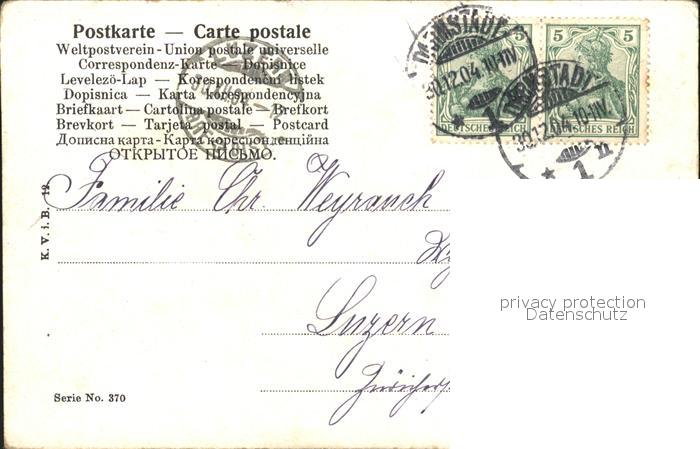 Postkarte — Carte postale
Weltpostverein - Union postale universelle
Correspondenz-Karte — Dopisnice
Levelező-Lap — Korespondenční listek
Dopisnica — Karta korespondencyjna
Briefkaart — Cartolina postale — Brefkort
Brevkort — Tarjeta postal — Postcard
Дописна карта - Карта кореспонденційна
ОТКРЫТОЕ ПИСЬМО.
5
DEUTSCHES REICH
DEUTSCHES REICH
DARMSTADT
30.12.04.10-11V.
* 1
DARMSTADT
30.12.04.10-11V.
* 1 n
K. V. i. B. 12
Familie Chr. Weyrauch
Luzern
Zürichers
Serie No. 370
privacy protection
Datenschutz